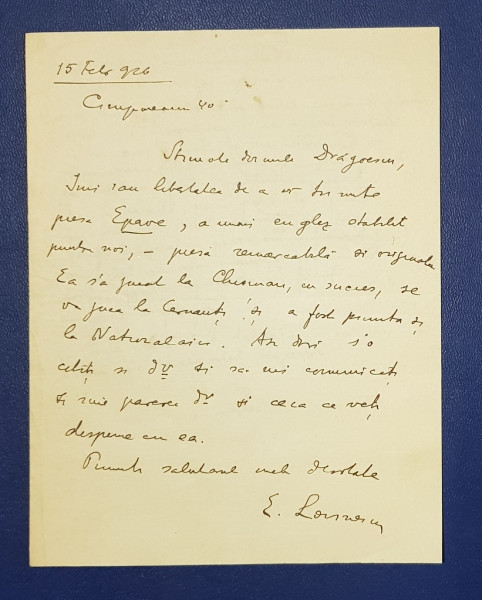 15 Febr 926
Câmpineanu 40
Stimate domnule Drăgoescu,
Îmi iau libertatea de a vă trimite
piesa Epave, a unui englez stabilit
printre noi, – piesă remarcabilă și originală
Ea s'a jucat la Chișinău, cu succes, se
va juca la Cernăuți și a fost primită și
la Naționalul. Aș dori s'o
citiți și dv și să-mi comunicați
și mie părerea dv și ceea ce veți
despune cu ea.
Primiți salutările mele devotate
E. Lovinescu